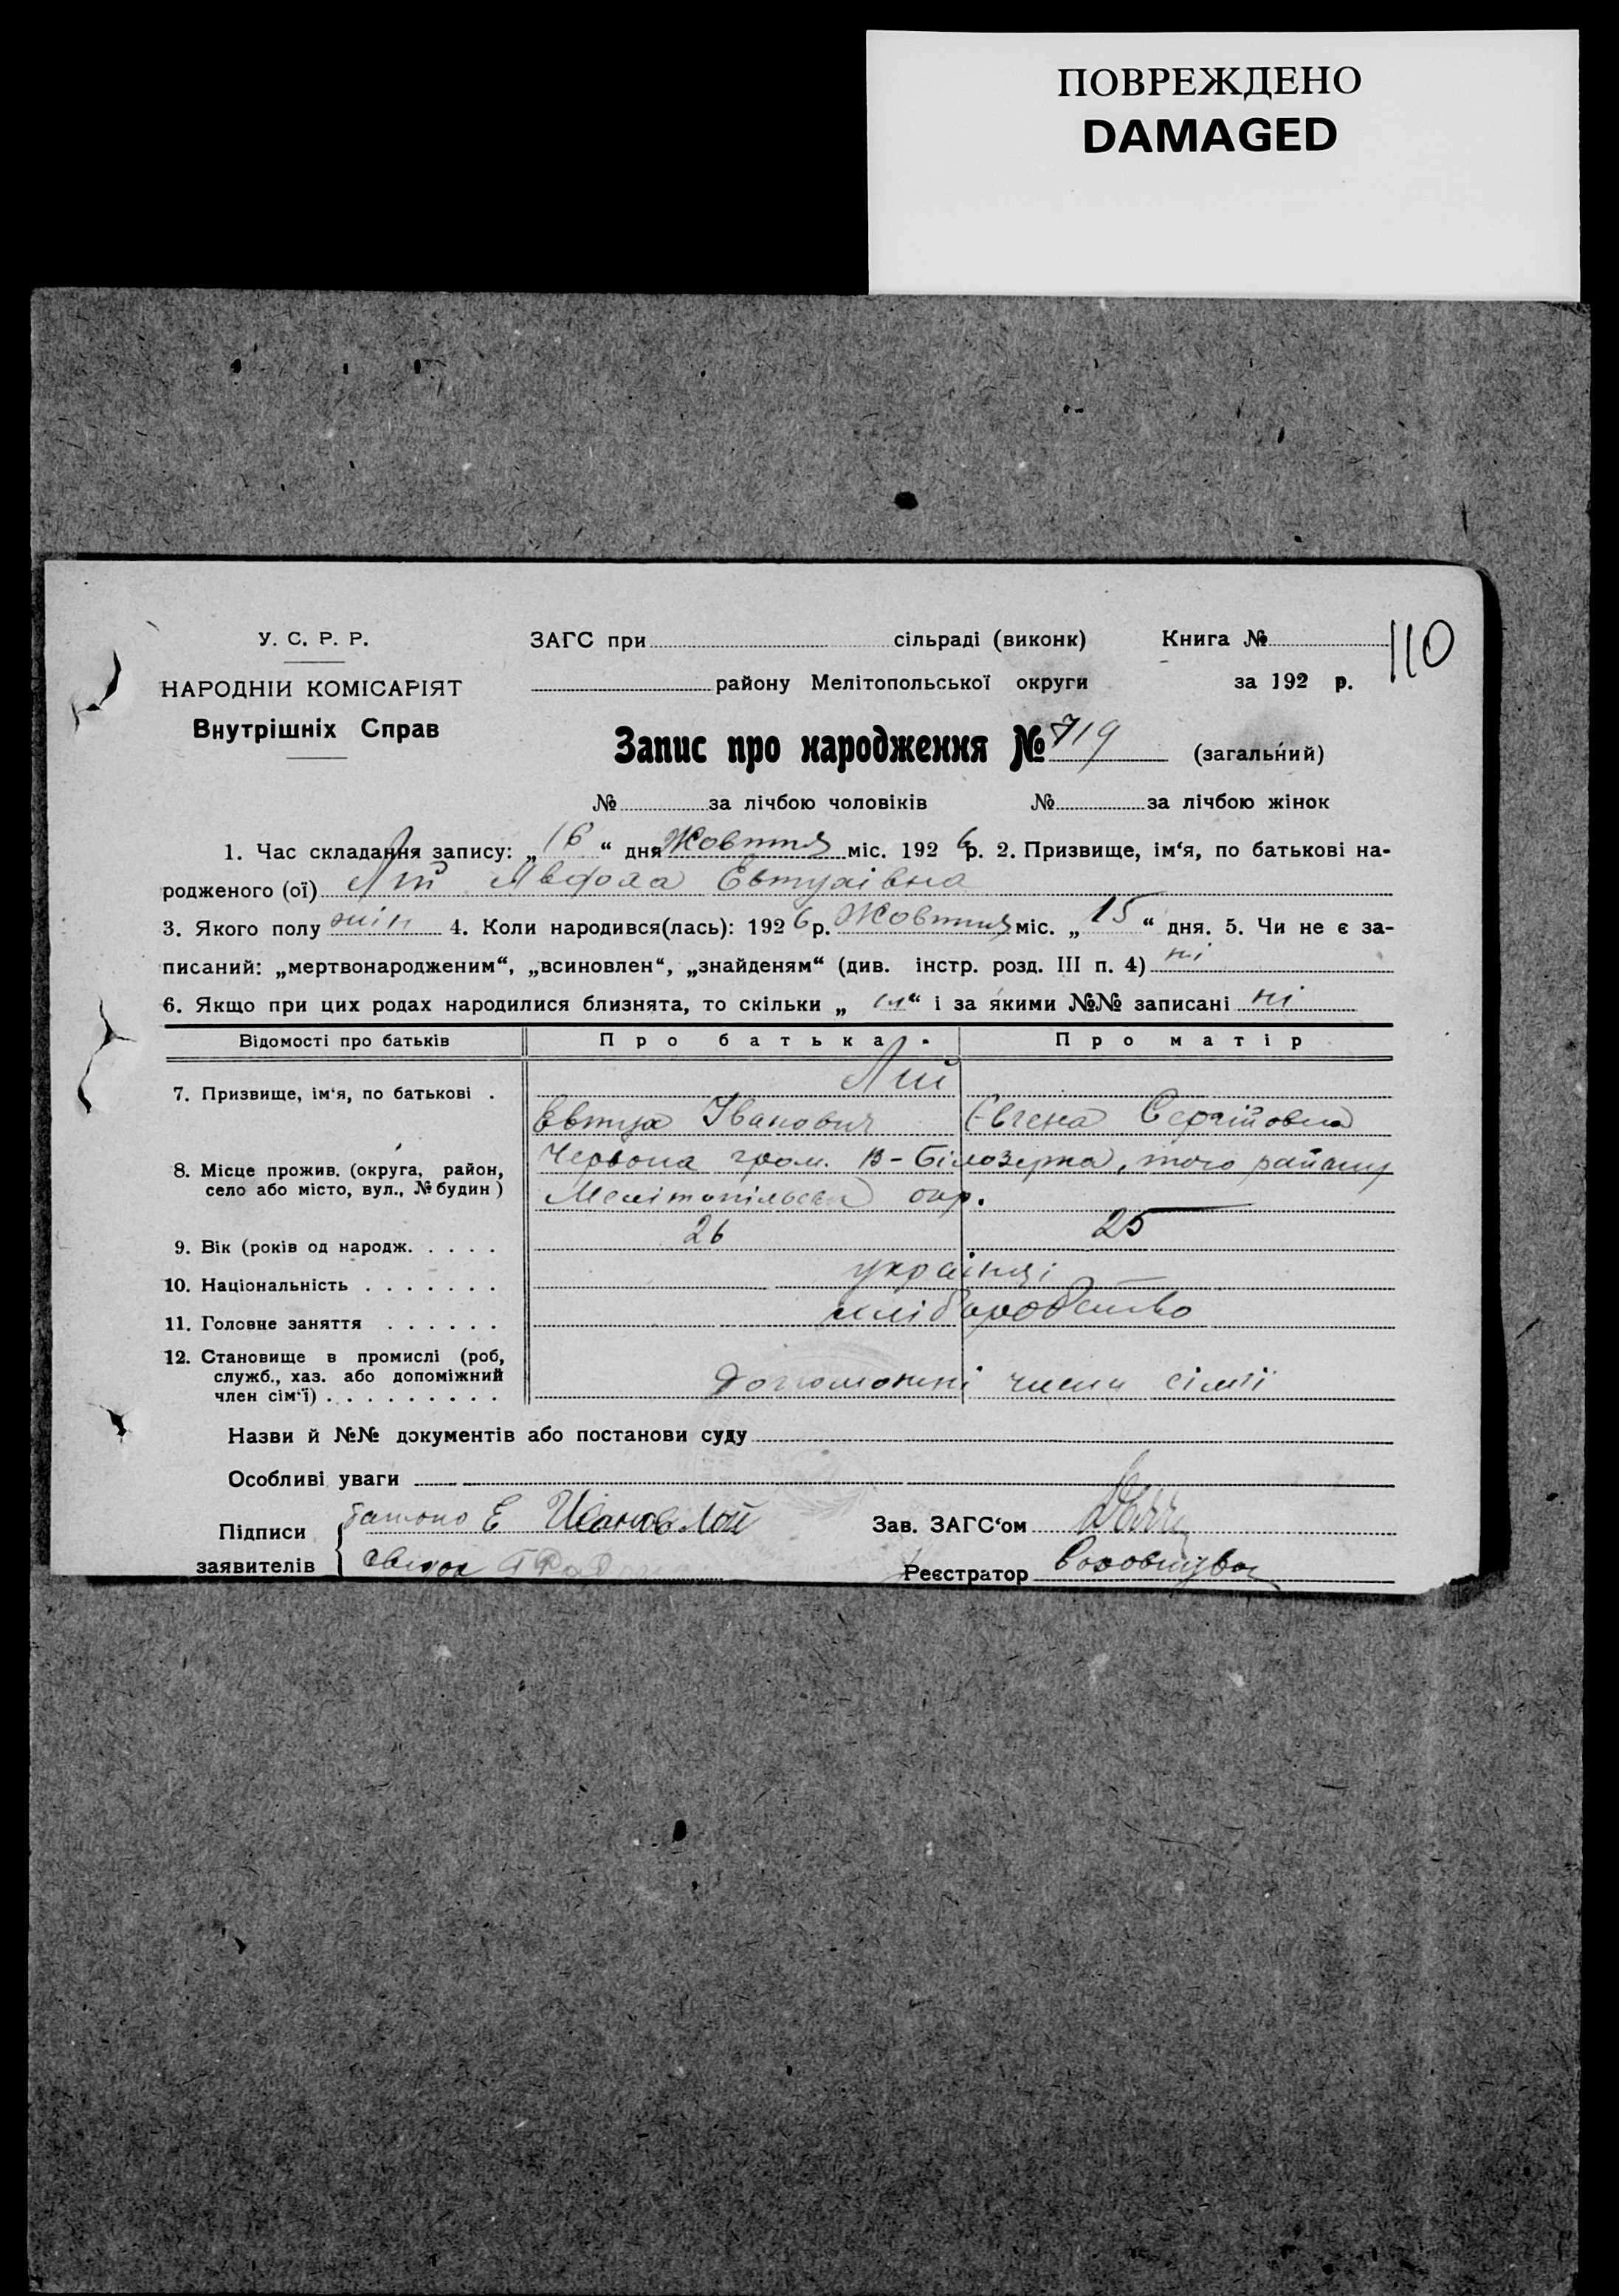 ПОВРЕЖДЕНО
DAMAGED
У. С. Р. Р.
ЗАГС при сільраді (виконк)
Книга №
110
НАРОДНІЙ КОМІСАРІЯТ
району Мелітопольської округи
за 192 р.
Внутрішніх Справ
Запис про народження № 719 (загальний)
№ за лічбою чоловіків № за лічбою жінок
1. Час складання запису: „16“ дня Жовтня міс. 1926 р. 2. Призвище, ім‘я, по батькові на-
родженого (ої) Лій Евтухівна
3. Якого полу жін 4. Коли народився(лась): 1926 р. Жовтня міс. „15“ дня. 5. Чи не є за-
писаний: „мертвонародженим“, „всиновлен“, „знайденям“ (див. інстр. розд. III п. 4) ні
6. Якщо при цих родах народилися близнята, то скільки „ “ і за якими №№ записані ні
Відомості про батьків Про батька Про матір
7. Призвище, ім‘я, по батькові . Лій
Евтух Іванович Євгена Сергійовна
8. Місце прожив. (округа, район,
село або місто, вул., № будин)
Червона гром. В-Білозерка, того району
Мелітопільськ окр.
9. Вік (років од народж. . . . . 26 25
10. Національність . . . . . . . українці
11. Головне заняття . . . . . . хліборобство
12. Становище в промислі (роб,
служб., хаз. або допоміжний
член сім‘ї) . . . . . . . . . допоможні члени сімії
Назви й №№ документів або постанови суду
Особливі уваги
Підписи
заявителів
батько Е Иванов Лій
свидок
Зав. ЗАГС‘ом
Реєстратор